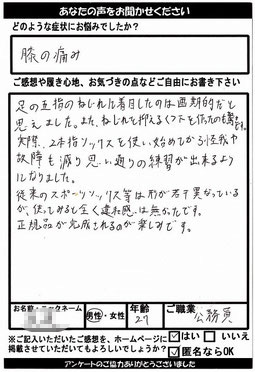 あなたの声をお聞かせください
どのような症状にお悩みでしたか?
膝の痛み
ご感想や履き心地、お気づきの点などご自由にお書き下さい
足の五指のねじれに着目したのは画期的だと
思えました。また、ねじれを抑えるくつ下を作ったのも驚きです。
実際、2本指ソックスを使い始めてから怪我や
故障も減り思い通りの練習が出来るよう
になりました。
従来のスポーツソックス等は形が若干異なっている
が、使ってみると全く違和感は無かったです。
正規品が完成されるのが楽しみです。
お名前・ニックネーム
男性・女性
年齢
27
ご職業
公務員
※ご記入いただいたご感想を、ホームページに
掲載させていただいてもよろしいでしょうか?
はい いいえ
匿名ならOK
アンケートのご協力ありがとうございました